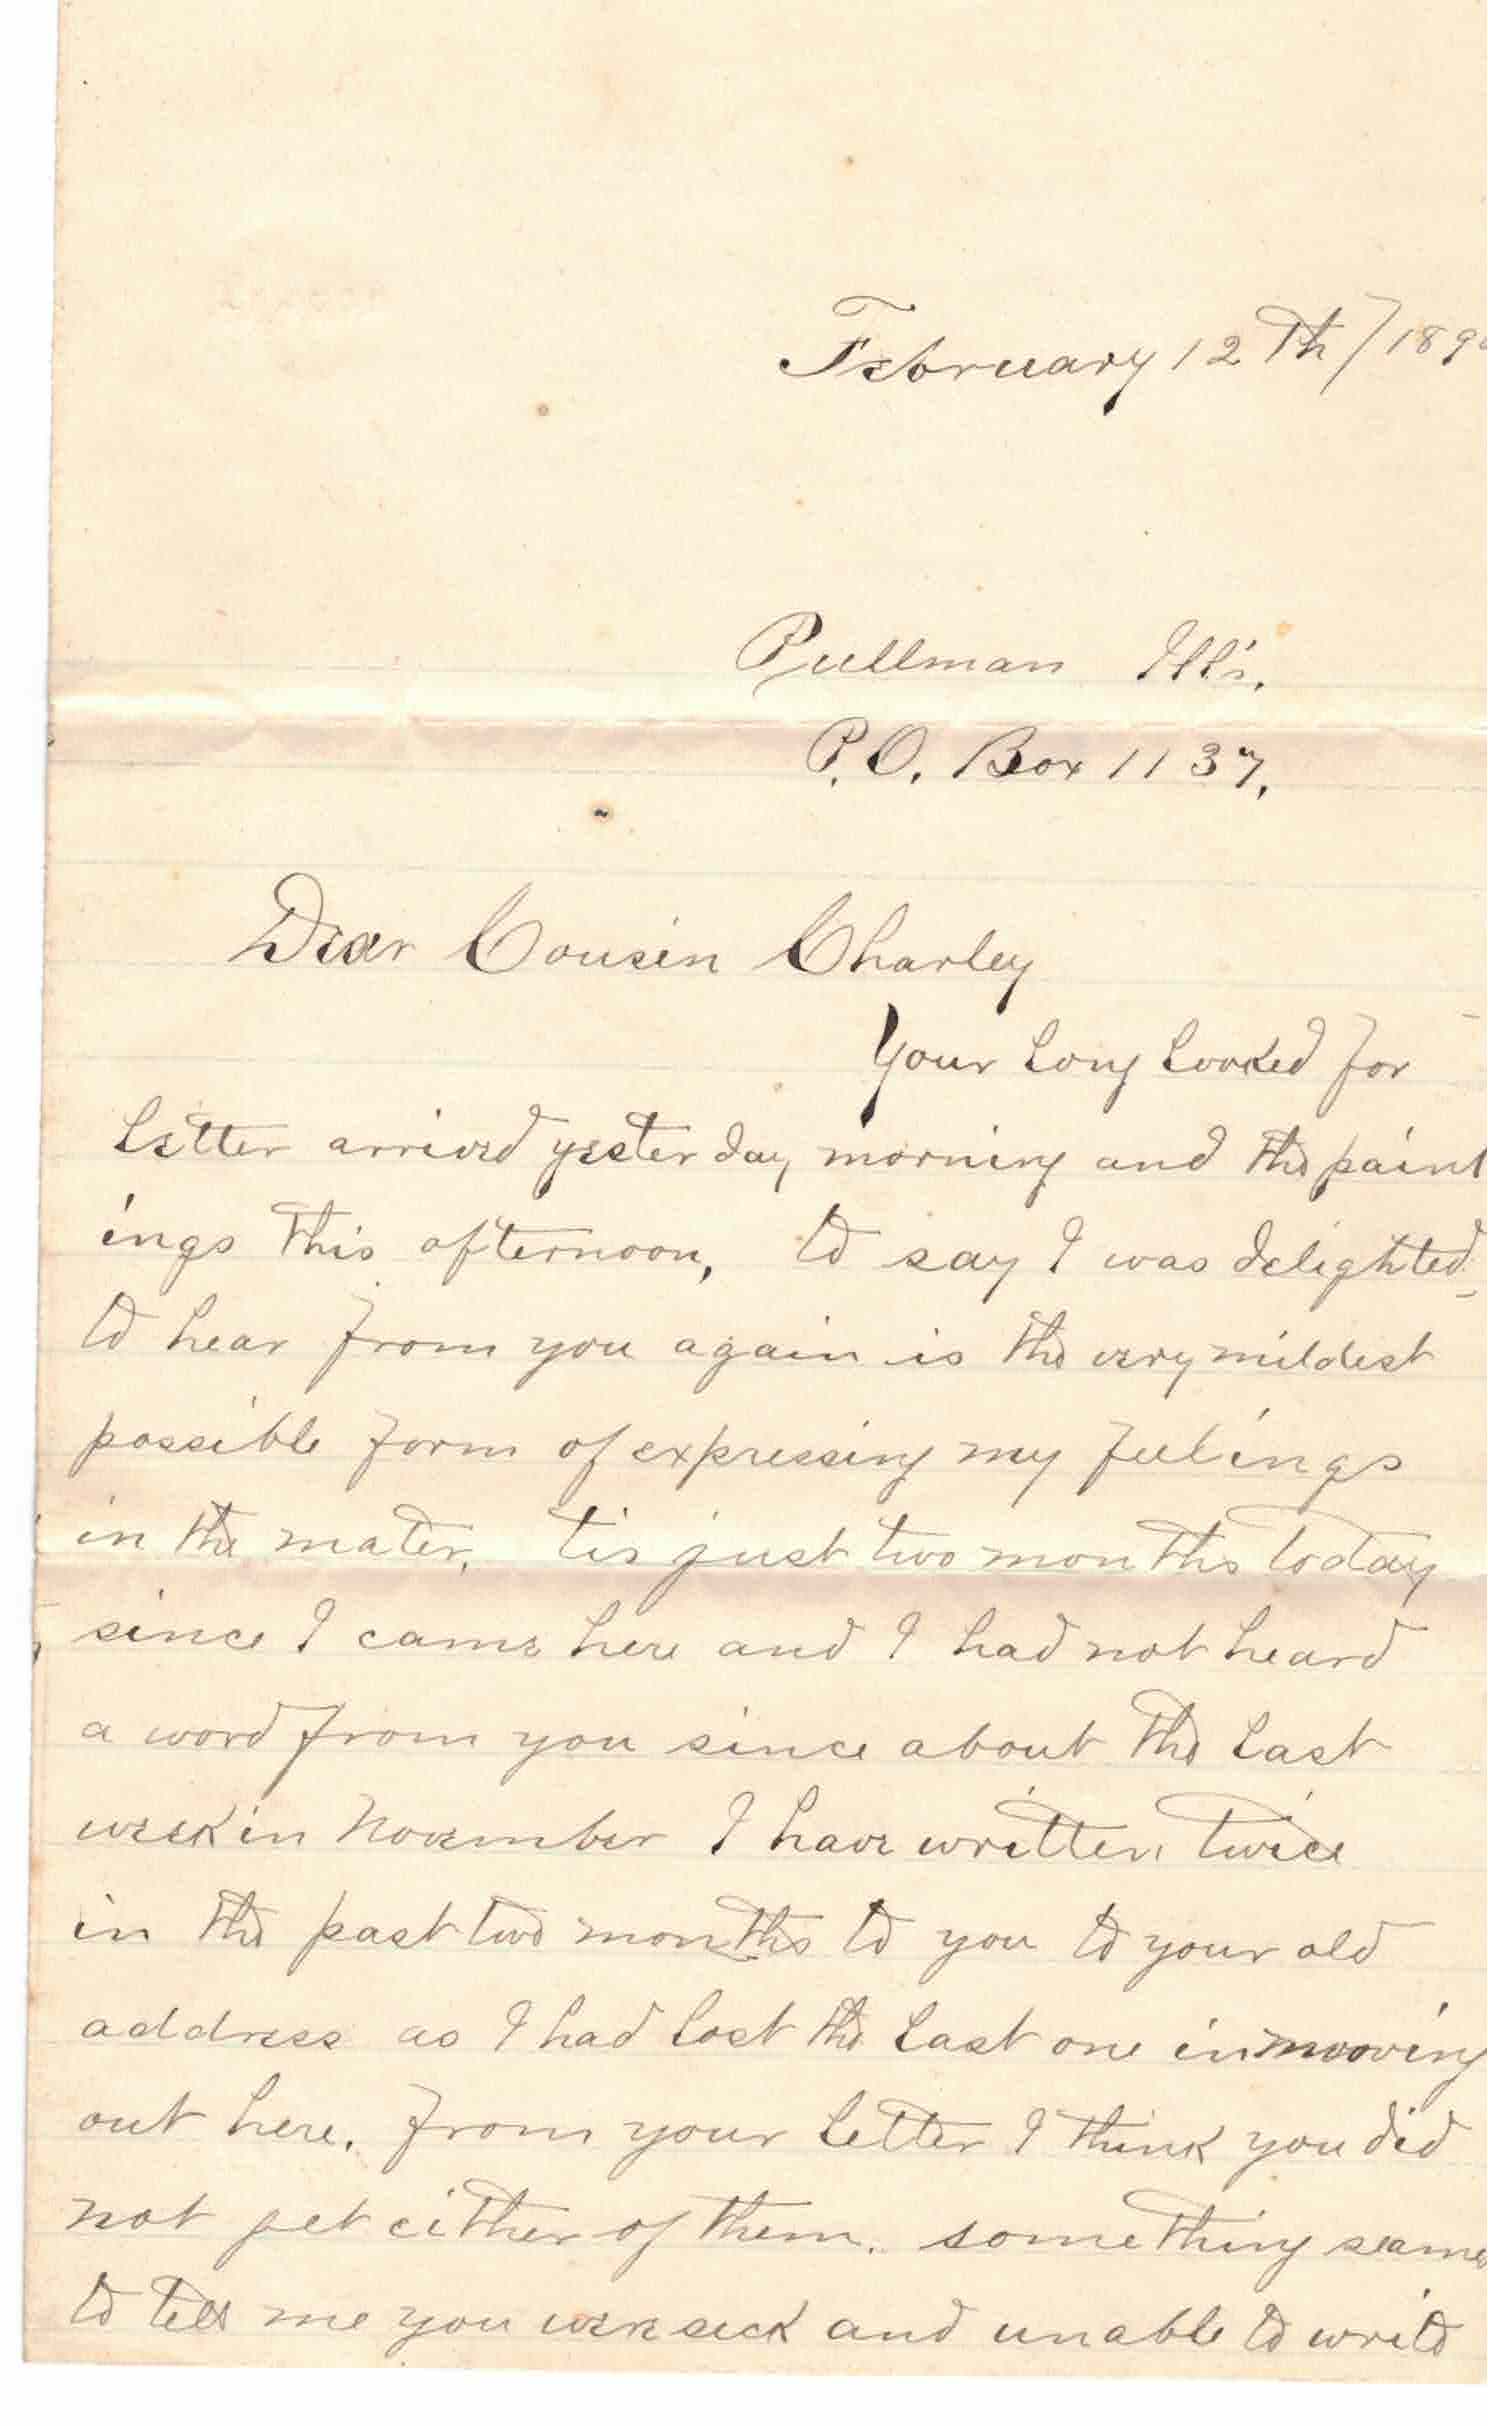 February 12th/189
Pullman Ills.
P.O. Box 1137.
Dear Cousin Charley
Your long looked for
letter arrived yesterday morning and the paint
ings this afternoon, to say I was delighted
to hear from you again is the very mildest
possible form of expressing my feelings
in the mater. tis just two months today
since I came here and I had not heard
a word from you since about the last
week in November I have written twice
in the past two months to you to your old
address as I had lost the last one in mooving
out here. from your letter I think you did
not get either of them. something seames
to tell me you were sick and unable to write